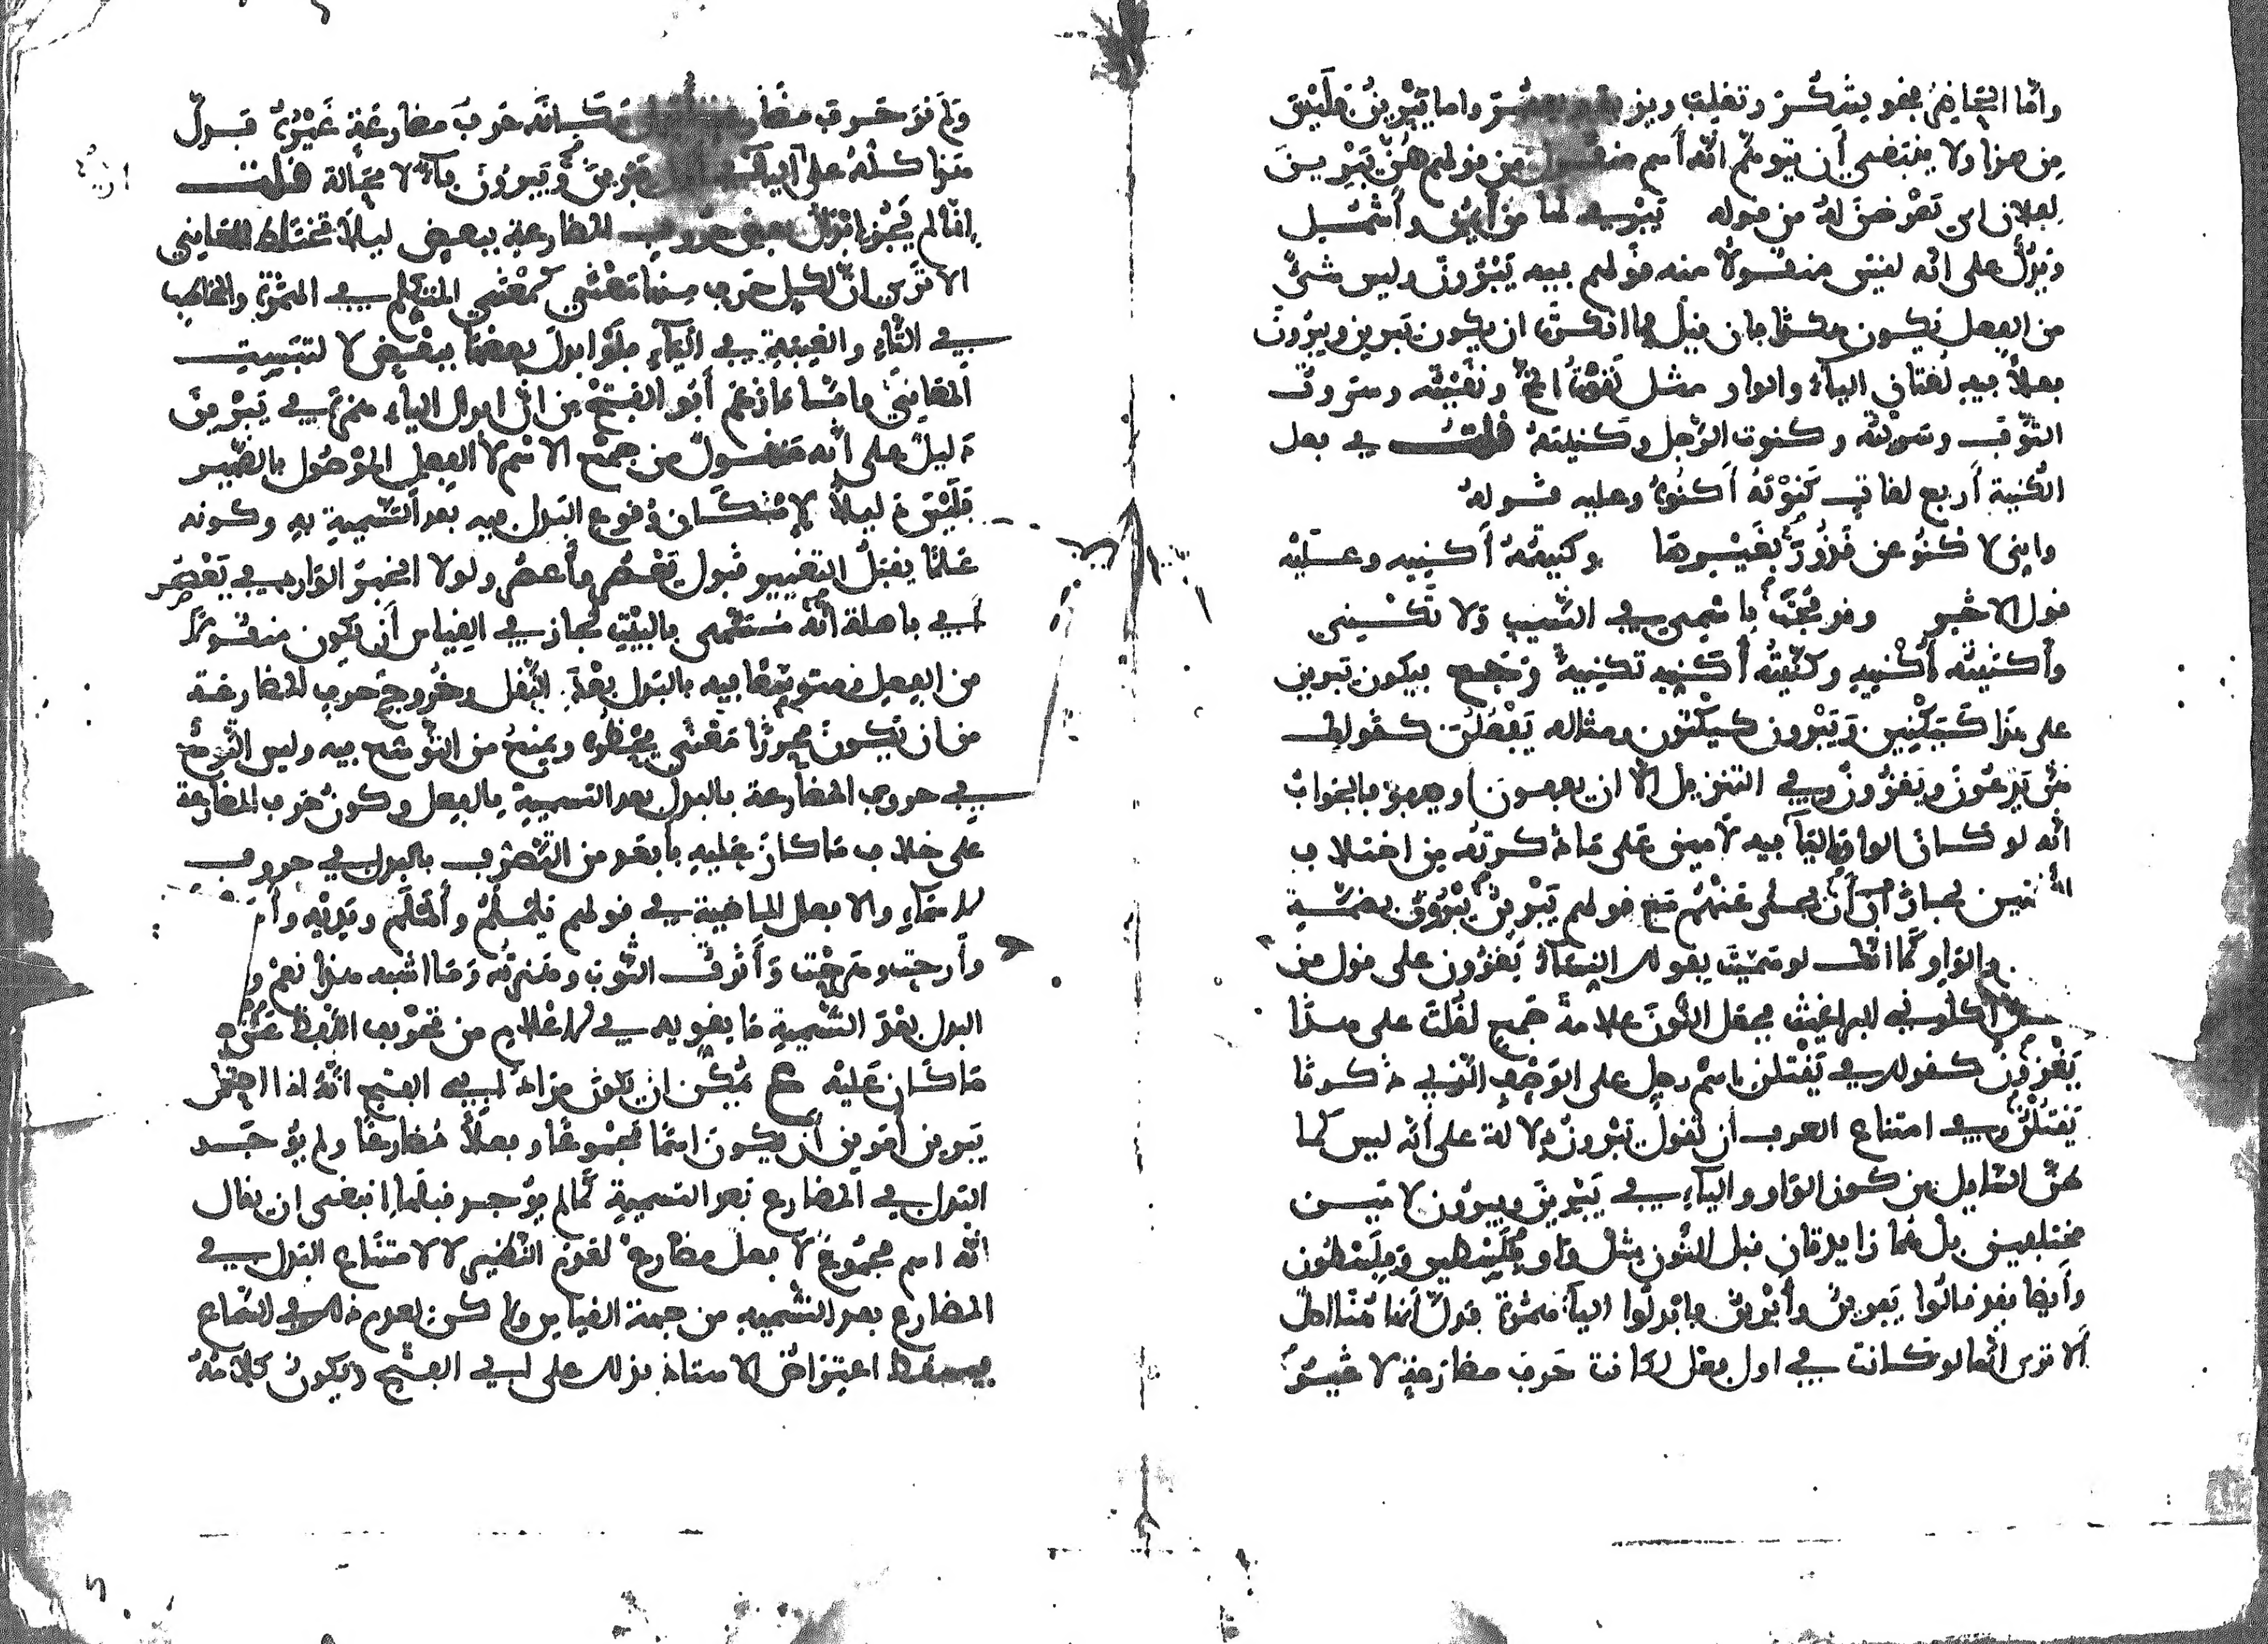 واما التجاذى نحو يشكر وتغلب ويزيد ويعصر واما يَبْرِينُ فليس
من هذا ولا ينبغي أن يتوهّم أنّه اسم منقول من قولهم هُنَّ يَبْرِينَ
لفلان اي يعْرضن له من قوله يَبْري لها من أيمن وأشمُل
ويدلُّ على انّه ليس منقولا منه قولهم فيه يَبْرُون وليس شيءٌ
من الفعل يكون هكذا فان قيل ما انكرت ان يكون يبرين ويبرون
فعلاً فيه لغتان الياءُ والواو مثل نَقَوْتُ المخّ ونقَيْته وسروت
الثّوبَ وسريْتُه وكنوت الرّجل وكنَيتهُ قلت في فعل
الكُنية أربع لغات كَنوْتهُ أَكنُوهُ وعليه قوله
وإني لأكنُو عن قَذُورَ بغَيْرها وكنيتهُ أكنيه وعليه
قول الاخر وقد بُحْتُ باسمي في النسيب ولا تكْنِي
وأكنيتُه أُكْنيهِ وكنّيتُه أُكَنّيه تكنيةً رَجع فيكون يبرين
على هذا كيَكْنِين ويَبْرون كيَكْنون ومثاله يَفْعُلْن كقولك
هنّ يَدْعُونَ ويَغْزُونَ وفي التنزيل الا ان يعفون او يعفو فالجوابُ
انّه لو كان الواو والياءُ فيه لامين على ما ذكرتَه من اختلاف
اللغتين لجاز أن يُحكى عنهم مع قولهم يَبْرِينُ يَبْرُونُ بضمّة
والواو كما انّك لو سمّيتَ بقولك النساءُ يَغْزُونَ على قول من
قال أكلوني البراغيث فجعل النّونَ علامةَ جَمعٍ لقُلْتَ على هذا
يَغْزُونُ كقولك في يَقْتُلْنَ اسْم رجل على الوَجْهِ الّذي ذكرنا
يَقْتُلْنُ وفي امتناع العرب أن تقولَ يَبْرُونُ دلالة على أنّه ليس كما
ظنّ السّايل من كون الواو والياءِ في يَبْرِينَ ويبرُون لامَين
مختلفين بل هُما زايدتانِ قبل النّون بمثل واو فِلَسْطين وفِلَسْطون
وأيضا فقد قالُوا يَبرينُ وأبْرينُ فابْدلُوا الياءَ همْزةً فدلّ أنّها هُنا اصلٌ
ألا ترى انّها لو كانت في اول فعل لكانت حَرفَ مضارعةٍ لا غيرُ
ولم نرَ حرف مضارعةٍ أُبدل مكانَه حَرفُ مضارعةٍ غَيْرُهُ فدلّ
هذا كلّهُ على انّ الياءَ في اول يَبْرِينَ ويَبرُونَ فآءٌ لا مَحالة قلت
إنما لم يَجُز إبْدالُ بعض حروف المضارعةِ ببعضٍ ليلا تختلطَ المعاني
الا ترى انّ لكل حرفٍ منها مَعْنًى كمعْنى المتكلم في الهمْزةِ والمخاطبِ
في التّاءِ والغيبةِ في اليَآءِ فلَو أُبدلَ بعضها ببَعْضٍ لالتبَسَتِ
المعَانِي فامّا ما زعَم أبو الفتح من انّ ابدال الياءِ همزةً في يَبْرِينَ
دَليلٌ على أنّه مَنقولٌ من جمْعِ الاسْم لا الفعل الموْصُول بالضّمير
فلَيْسَ دَليلاً لإمْكان وُقوعِ البَدل فيه بعد التّسْمِيةِ بهِ وكونه
عَلمًا يقبَلُ التغيير قَبول يَعْصُر وأَعصُر ولولا انحيز الوارد في يَعْصُر
أبي باهلة أنّه مُسَمّى بالبيْت لجاز في القياس أن يكون منقولاً
من الفعل ومتوسّعًا فيه بالبَدل بَعْدَ النّقل وخُروج حرفِ المضارعَة
من ان يكونَ محرزًا مَعْنًى يحفظه ويمنعُ من التوسّع فيه وليس التّوسّعُ
في حروف المضارعة بالبدل بعد التسميةِ بالفعل وكونُ حَرف المضارعة
على خلاف ما كان عليهِ بأبعد من التّصَرُّف بالبدل في حروف
الاسماءِ والافعال الماضية في قولهم يلملَمُ وألمْلَم ويَديْه وأد
وأرحت وهرحْت وَأَنرْتُ الثّوبَ وهَنرتُه وَما اشبه هذا نعَمْ و
البدل بعْدَ التّسْميةِ ما يقويه في الاعْلام من تحْويف اللفظ عمّا
مَا كان عَليْه ع يُمْكن ان يكون مرادُ أبي الفتح انّهُ اذا احتمل
يبرين أمرين أن يكونَ اسمًا مجْموعًا وفعلاً مُضارعًا ولم يُوجَد
البَدل في المضارع بعد التسميةِ كما لم يوُجد قبلَها انبغى ان يقال
انّه اسم مجْمُوعٌ لا فعلٌ مضارعٌ لعَدَم النّظير لا لامتناع البَدل في
المضارع بعد التّسميةِ من جهة القياسِ ولاكن لعدم ذلك في السّماع
فيسقط اعتراضُ الاستاذ بذلك على أبي الفتح ويكونُ كلامُهُ